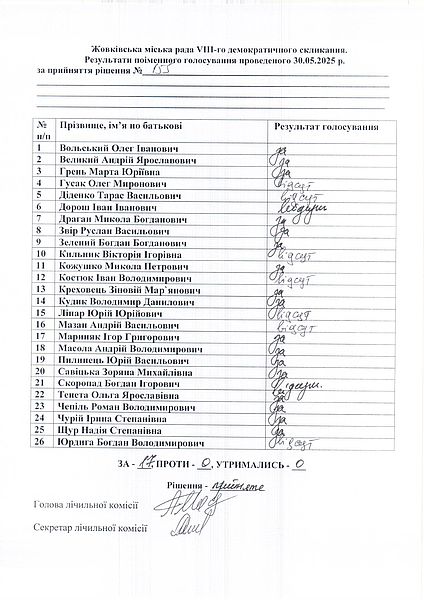 Жовківська міська рада VIII-го демократичного скликання.
Результати поіменного голосування проведеного 30.05.2025 р.
за прийняття рішення № 155
№ п/п Прізвище, ім’я по батькові Результат голосування
1 Вольський Олег Іванович за
2 Великий Андрій Ярославович за
3 Грень Марта Юріївна за
4 Гусак Олег Миронович відсут
5 Діденко Тарас Васильович відсут
6 Дорош Іван Іванович
7 Драган Микола Богданович за
8 Звір Руслан Васильович за
9 Зелений Богдан Богданович за
10 Кильник Вікторія Ігорівна відсут
11 Кожушко Микола Петрович за
12 Костюк Іван Володимирович відсут
13 Креховець Зіновій Мар`янович за
14 Кудик Володимир Данилович за
15 Ліпар Юрій Юрійович відсут
16 Мазан Андрій Васильович відсут
17 Мариняк Ігор Григорович за
18 Масола Андрій Володимирович за
19 Пилипець Юрій Васильович за
20 Савіцька Зоряна Михайлівна за
21 Скоропад Богдан Ігорович відсут.
22 Тенета Ольга Ярославівна за
23 Чепіль Роман Володимирович за
24 Чурій Ірина Степанівна за
25 Щур Надія Степанівна за
26 Юрдига Богдан Володимирович відсут
ЗА - 17, ПРОТИ - 0, УТРИМАЛИСЬ - 0
Рішення - прийняте
Голова лічильної комісії
Секретар лічильної комісії